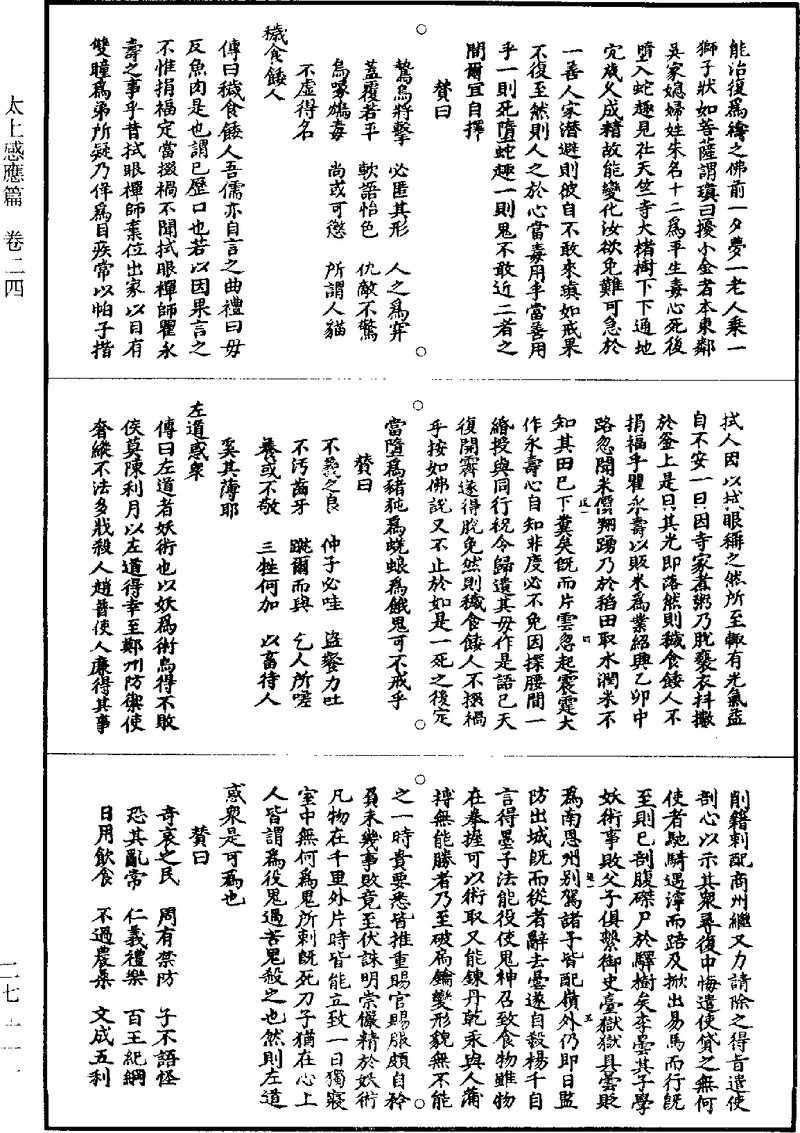 太上感應篇　卷二四
能治復為禱之佛前一夕夢一老人乘一
獅子狀如菩薩謂瑱曰擾小金者本東鄰
吳家媳婦姓朱名十二為平生毒心死後
墮入蛇趣見社天竺寺大楮樹下下通地
穴歲久成精故能變化汝欲免難可急於
一善人家潛避則彼自不敢來瑱如戒果
不復至然則人之於心當毒用乎當善用
乎一則死墮蛇趣一則鬼不敢近二者之
間爾宜自擇
贊曰
鷙鳥將擊　必匿其形　人之為穽
蓋覆若平　軟語怡色　仇敵不驚
烏喙鴆毒　尚或可懲　所謂人貓
不虛得名
穢食餧人
傳曰穢食餧人吾儒亦自言之曲禮曰毋
反魚肉是也謂已歷口也若以因果言之
不惟捐福定當掇禍不聞拭眼禪師瞿永
壽之事乎昔拭眼禪師棄位出家以目有
雙瞳為弟所疑乃佯為目疾常以帕子揩
拭人因以拭眼稱之然所至輒有光氣益
自不安一日因寺家煮粥乃脫褻衣抖擻
於釜上是日其光即落然則穢食餧人不
捐福乎瞿永壽以販米為業紹興乙卯中
路忽聞米價翔踴乃於稻田取水潤米不
知其田已下糞矣既而片雲忽起震霆大
作永壽心自知非度必不免因探腰間一
緡授與同行祝令歸遺其毋作是語已天
復開霽遂得脫免然則穢食餧人不掇禍
乎按如佛說又不止於如是一死之後定
當墮為豬㹠為蜣蜋為餓鬼可不戒乎
贊曰
不義之良　仲子必哇　盜餐力吐
不汚齒牙　蹴爾而與　乞人所嗟
養或不敬　三牲何加　以畜待人
奚其薄耶
左道惑衆
傳曰左道者妖術也以妖為術烏得不敗
侯莫陳利用以左道得幸至鄭州防禦使
奢縱不法多戕殺人趙普使人廉得其事
削籍刺配商州繼又力請除之得旨遣使
剖心以示其衆尋復中悔遣使貸之無何
使者馳騎遇濘而踣及掀出易馬而行既
至則已剖腹磔尸於驛樹矣李曇其子學
妖術事敗父子俱繫御史臺獄獄具曇貶
為南恩州別駕諸子皆配嶺外仍即日監
防出城既而從者辭去曇遂自殺楊千自
言得墨子法能役使鬼神召致食物雖物
在拳握可以術取又能鍊丹乾汞與人蒲
摶無能勝者乃至破扃鑰變形貌無不能
之一時貴要悉皆推重賜官賜服頗自矜
負未幾事敗竟至伏誅明崇儼精於妖術
凡物在千里外片時皆能立致一日獨寢
室中無何為鬼所刺既死刀子猶在心上
人皆謂為役鬼過苦鬼殺之也然則左道
惑衆是可為也
贊曰
奇袤之民　周有禁防　子不語怪
恐其亂常　仁義禮樂　百王紀綱
日用飲食　不過農桑　文成五利